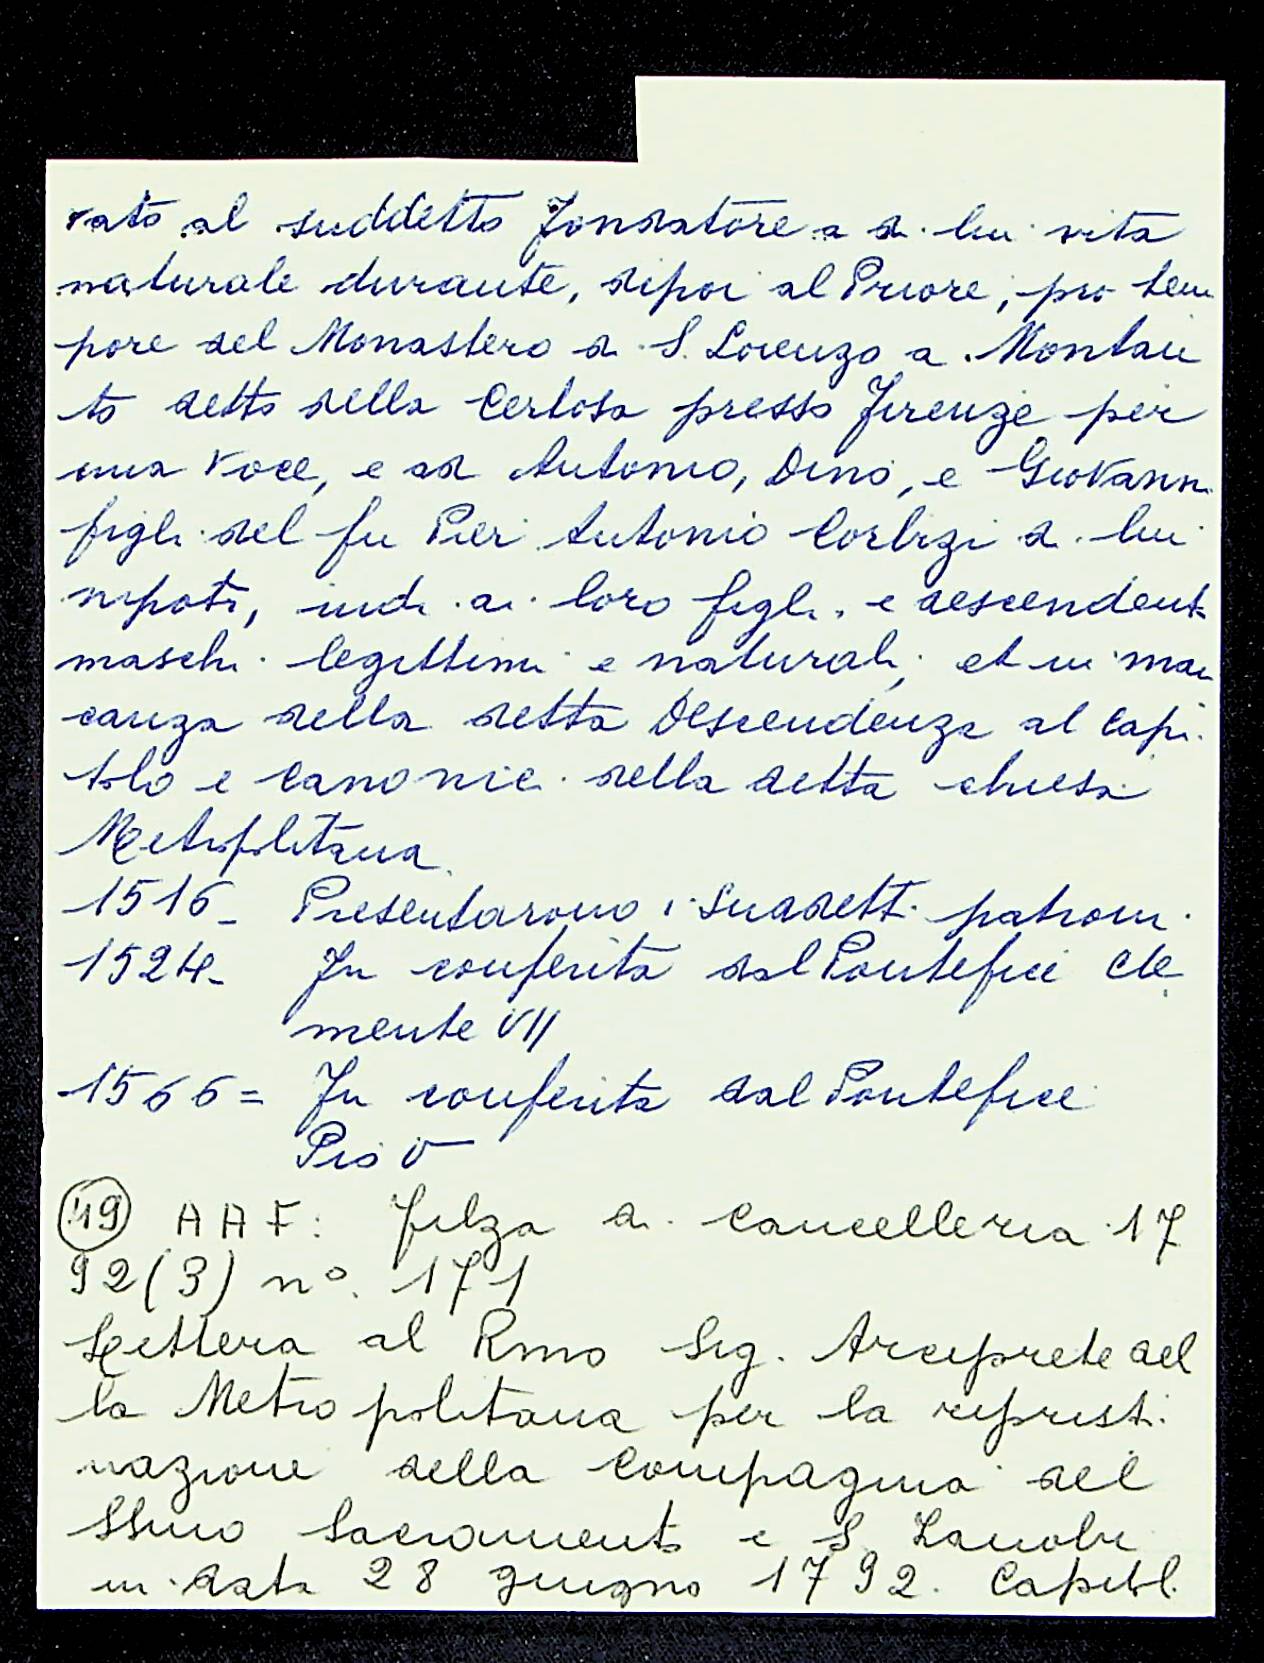 rato al suddetto Fondatore a di lui vita
naturale durante, dipoi al Priore, pro tem
pore del Monastero di S. Lorenzo a Montau
to detto della Certosa presso Firenze per
una voce, e ad Antonio, Dino, e Giovanni
figli del fu Pier Antonio Corbizi di lui
nipoti, indi ai loro figli e descendenti
maschi legittimi e naturali, et in man
canza della detta Descendenza al Capi
tolo e Canonici della detta chiesa
Metropolitana
1516_ Presentarono i suddetti patroni
1524_ Fu conferita dal Pontefice Cle
mente VII
1566= Fu conferita dal Pontefice
Pio V
49 AAF: Filza di Cancelleria 17
92(3) n°. 171
Lettera al Rmo Sig. Arciprete del
la Metropolitana per la ripristi
nazione della Compagnia del
SSmo Sacramento e S. Zanobi
in data 28 giugno 1792. Capitol.